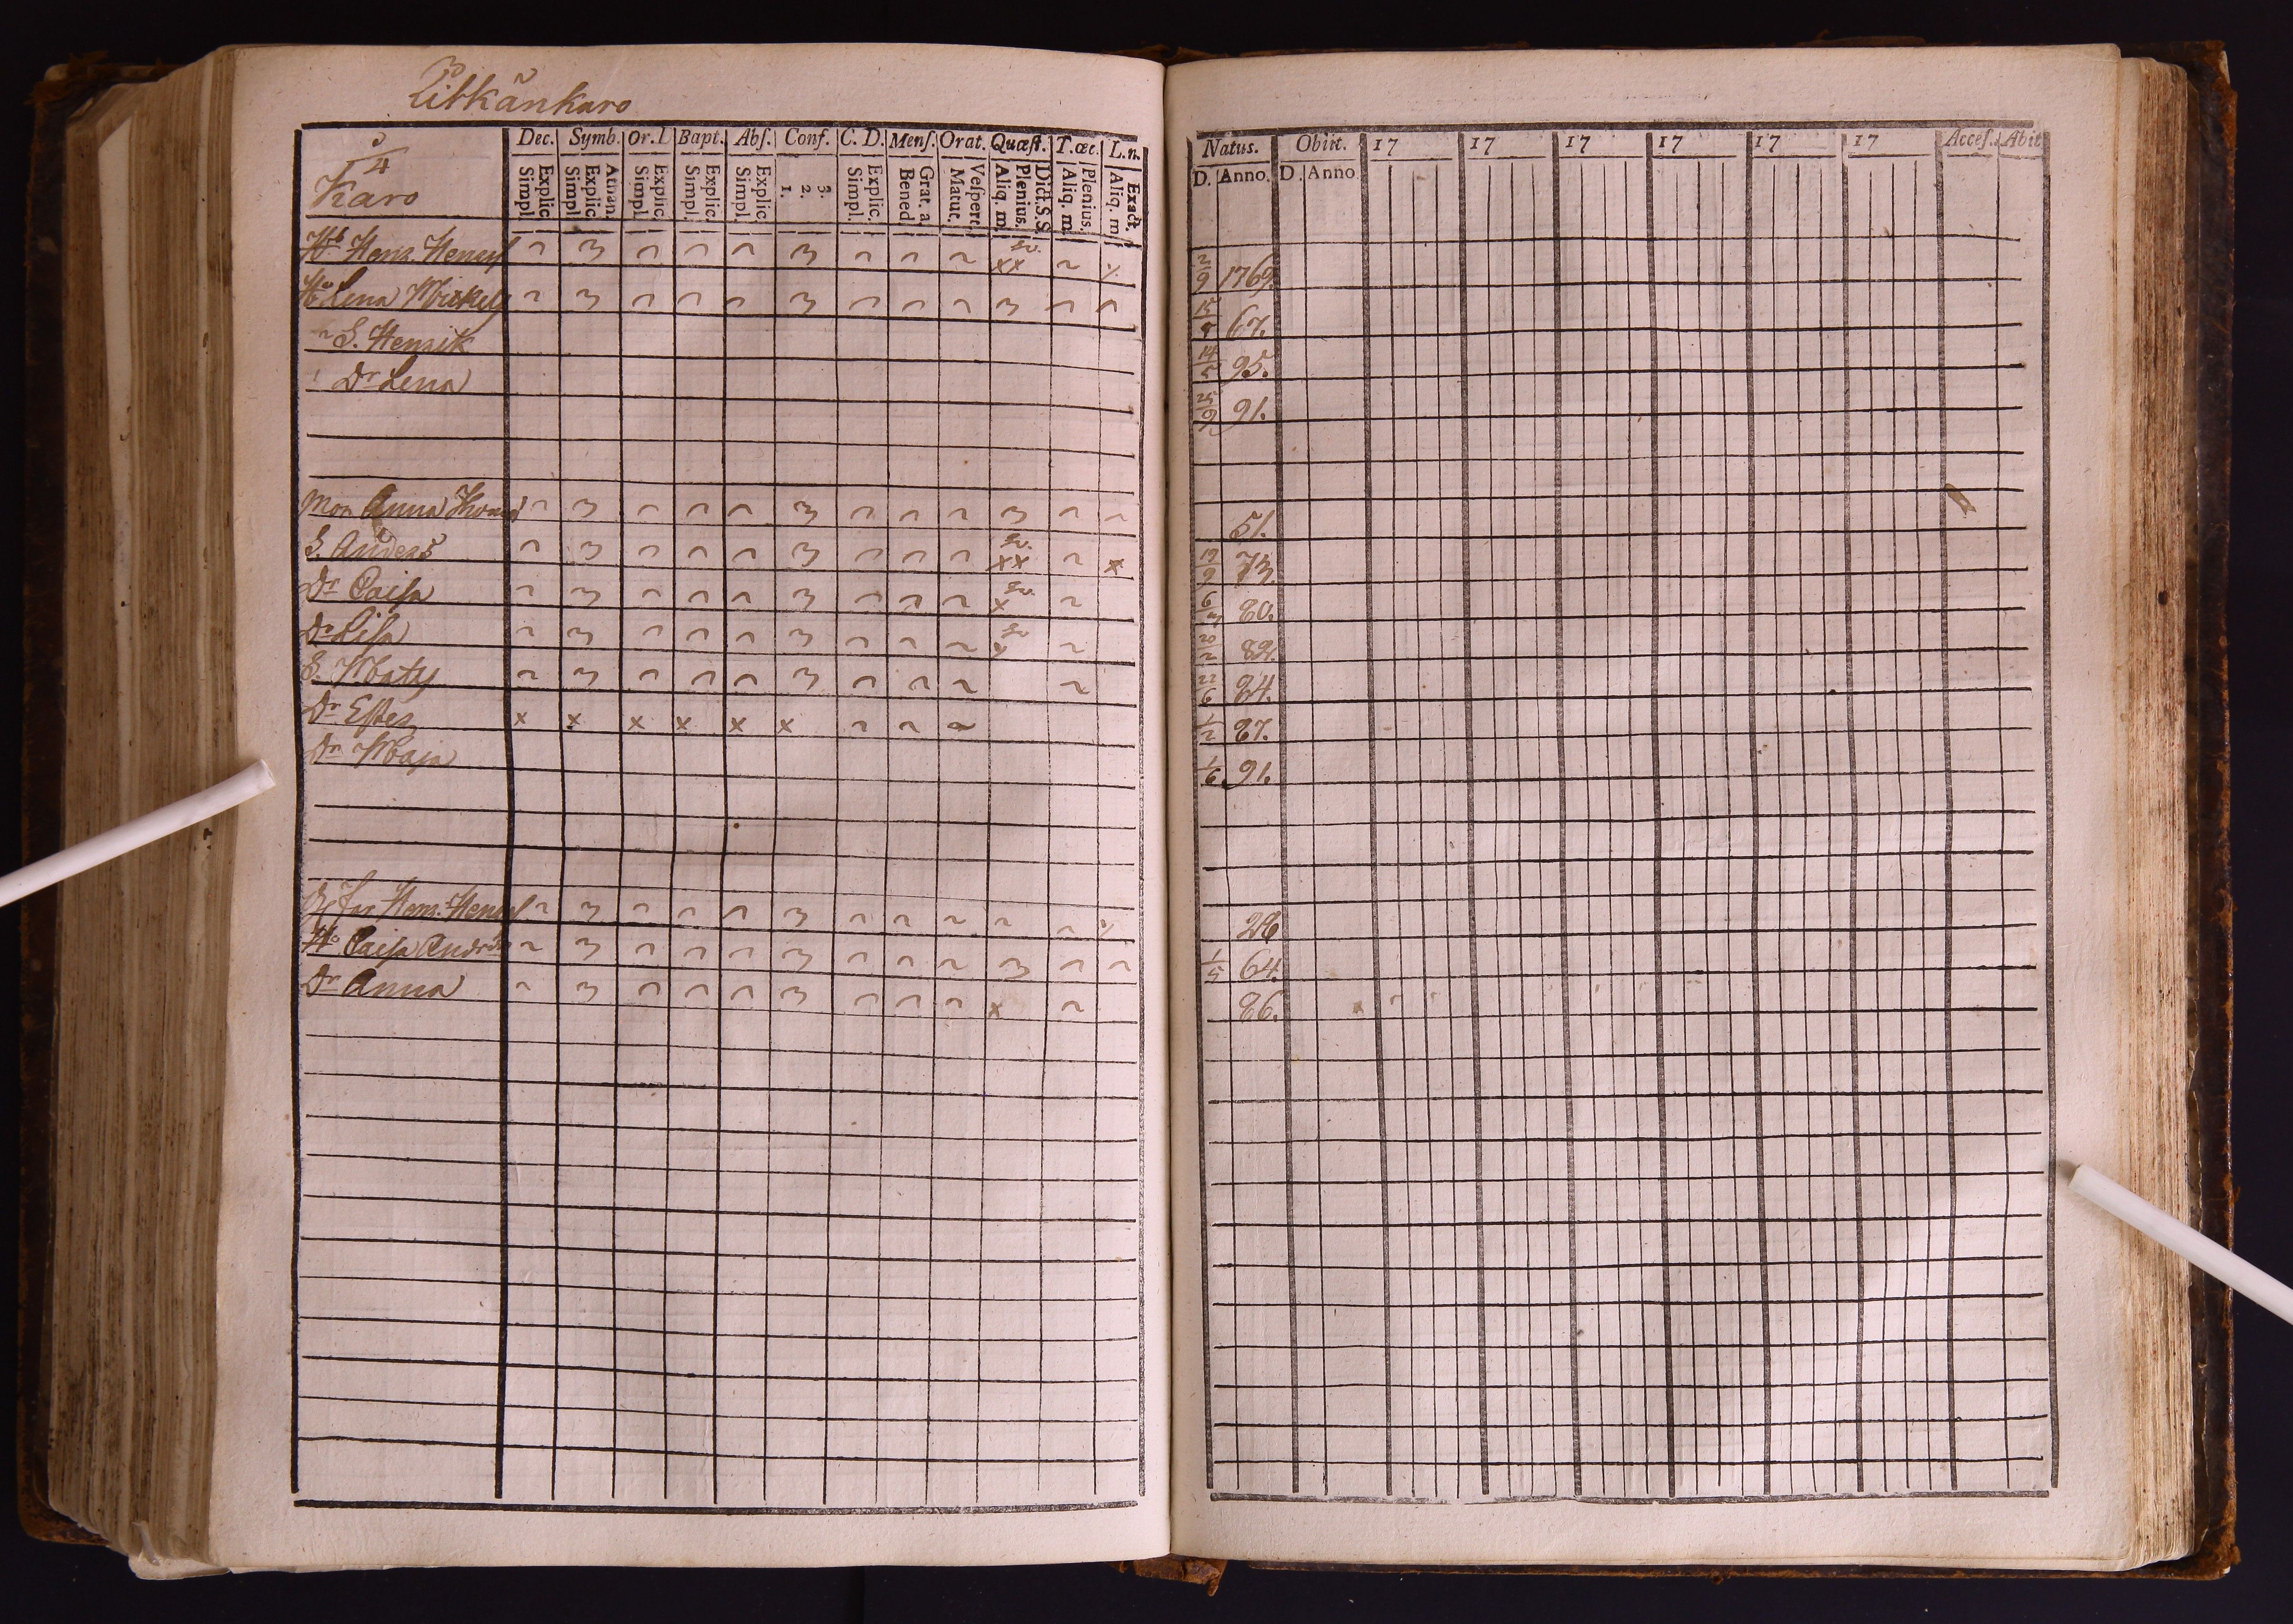 Pitkänkaro
Dec. Symb. Or. D Bapt. Abſ. Conf. C. D. Menſ. Orat. Quæſt. T. œc. L. n.
Simpl. Explic. Simpl. Explic. Athan. Simpl. Explic. Simpl. Explic. Simpl. Explic. 1. 2. 3. Simpl. Explic. Bened. Grat. a. Matut. Veſpert. Aliq. m. Plenius. Dict. S. S. Aliq. m. Plenius. Aliq. m. Exact.
3/4
Karo
Hb Henr. Henrss
Ho Lena Mickels
S. Henrik
Dr Lena
Mor Anna
S. Anders
Dr Caisa
Dr Lisa
S. Mats
Dr Ester
Dr Maja
Far Henr. Henrss
Ho Caisa Andrs
Dr Anna
Natus. Obiit. 17 17 17 17 17 17 Acceſ. Abit
D. Anno. D. Anno
2/9 1769.
67.
14/5 95.
25/9 91.
51.
19/9 73.
80.
20/2 82.
22/6 84.
1/2 87.
1/6 91.
28
1/5 64.
86.